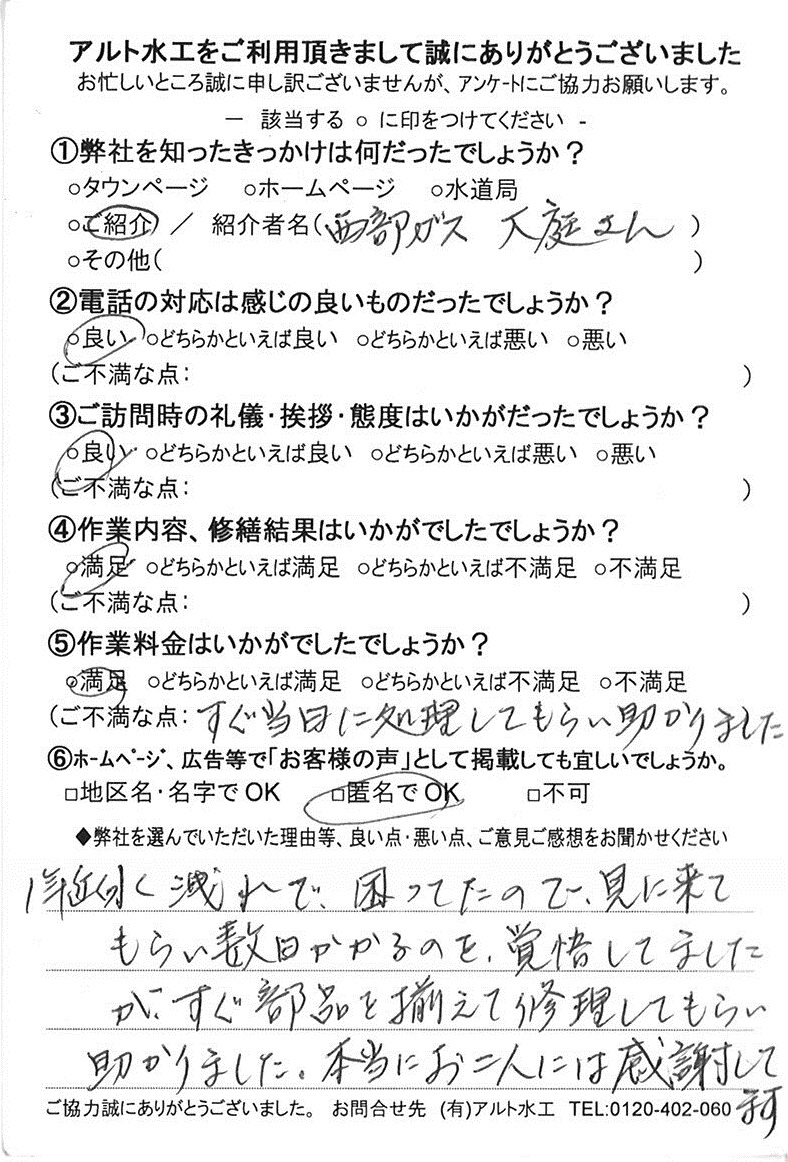 アルト水工をご利用頂きまして誠にありがとうございました
お忙しいところ誠に申し訳ございませんが、アンケートにご協力お願いします。
－ 該当する ○ に印をつけてください -
①弊社を知ったきっかけは何だったでしょうか？
○タウンページ ○ホームページ ○水道局
○ご紹介 ／ 紹介者名(西部ガス 大庭さん )
○その他( )
②電話の対応は感じの良いものだったでしょうか？
○良い ○どちらかといえば良い ○どちらかといえば悪い ○悪い
(ご不満な点： )
③ご訪問時の礼儀・挨拶・態度はいかがだったでしょうか？
○良い ○どちらかといえば良い ○どちらかといえば悪い ○悪い
(ご不満な点： )
④作業内容、修繕結果はいかがでしたでしょうか？
○満足 ○どちらかといえば満足 ○どちらかといえば不満足 ○不満足
(ご不満な点： )
⑤作業料金はいかがでしたでしょうか？
○満足 ○どちらかといえば満足 ○どちらかといえば不満足 ○不満足
(ご不満な点：すぐ当日に処理してもらい助かりました
⑥ホームページ、広告等で「お客様の声」として掲載しても宜しいでしょうか。
□地区名・名字でOK □匿名でOK □不可
◆弊社を選んでいただいた理由等、良い点・悪い点、ご意見ご感想をお聞かせください
1年近く 洩れで、困ってたので、見に来て
もらい数日かかるのを、覚悟してました
が、すぐ部品を揃えて修理してもらい
助かりました。本当にお二人には感謝して
ます
ご協力誠にありがとうございました。 お問合せ先 (有)アルト水工 TEL:0120-402-060